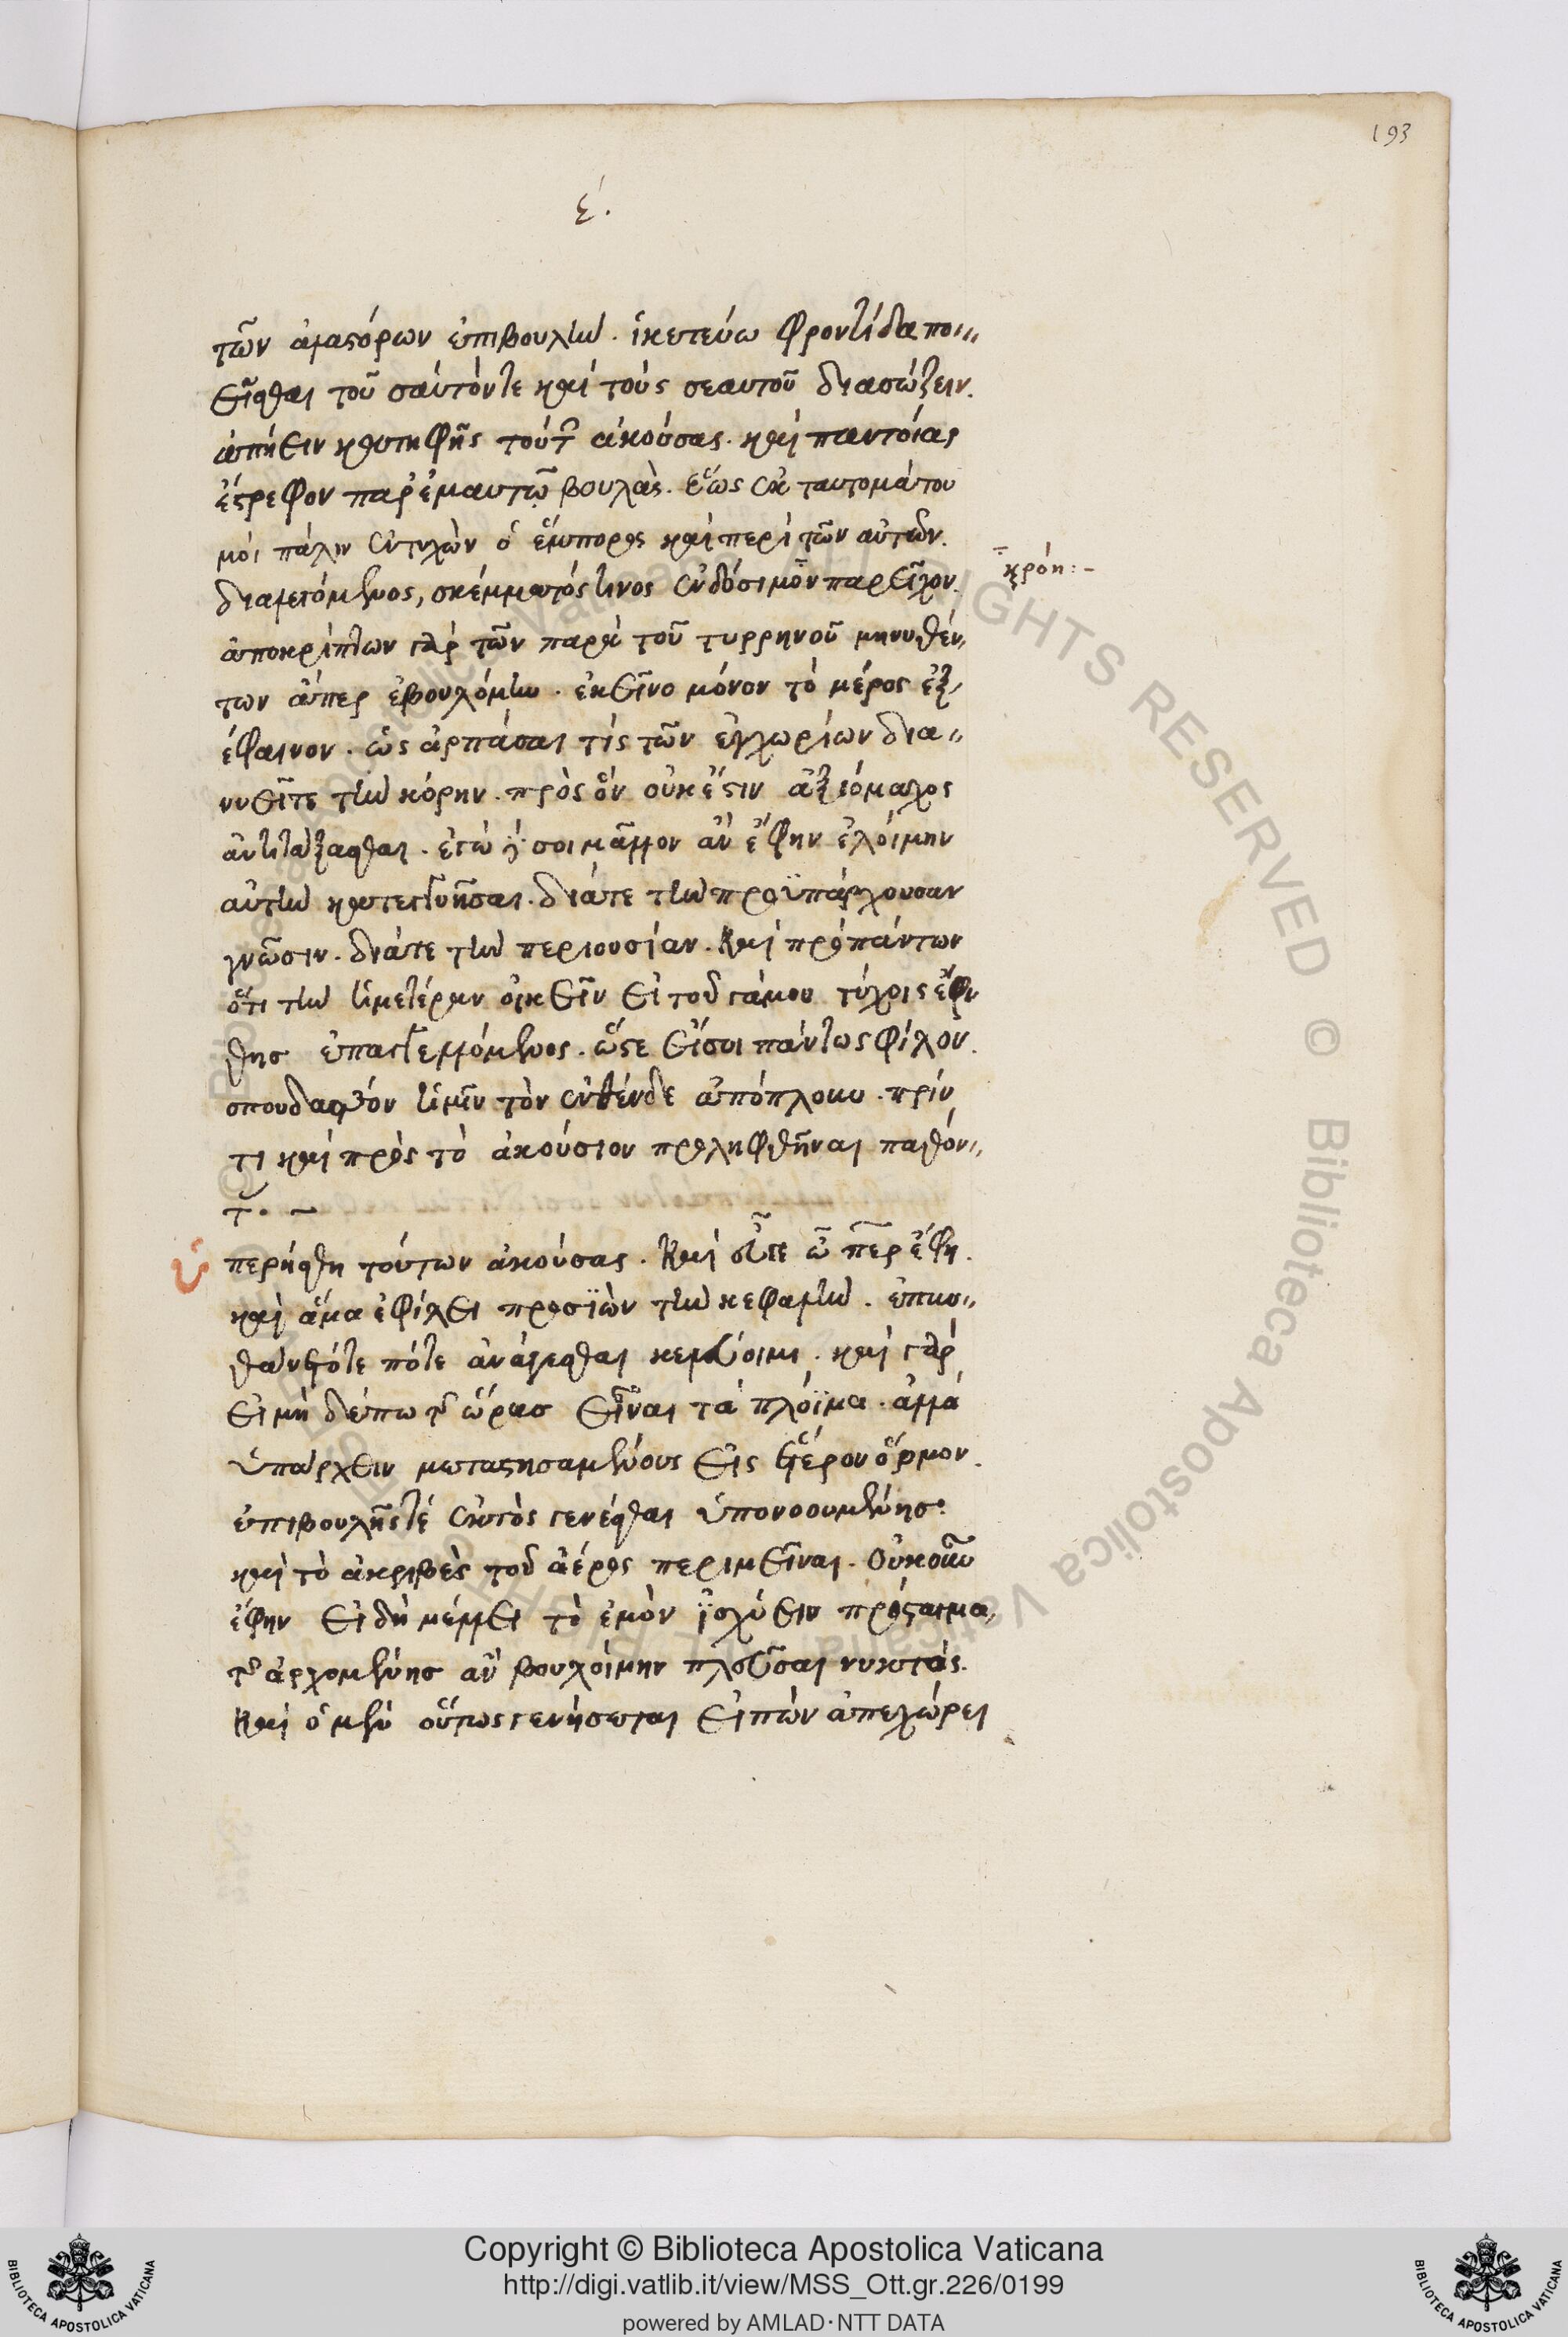 193
ε΄.
τῶν ἀλαστόρων ἐπιβουλήν. ἱκετεύω φροντίδα ποι〃
εῖσθαι τοῦ σαυτόντε καὶ τοὺς σεαυτοῦ διασώζειν.
ἀπῄειν κατηφὴς τούτων ἀκούσας. καὶ παντοίας
ἔστρεφον παρ' ἐμαυτῷ βουλὰς. ἕως ἐκ ταυτομάτου
μοὶ πάλιν ἐντυχὼν ὁ ἔμπορος καὶ περὶ τῶν αὐτῶν.
διαλεγόμενος, σκέμματός τινος ἐνδόσιμον παρεῖχον.
κρόη:-
ἀποκρύπτων γὰρ τῶν παρὰ τοῦ τυρρηνοῦ μηνυθέν
των ἅπερ ἐβουλόμην. ἐκεῖνο μόνον τὸ μέρος ἐξ
έφαινον. ὡς ἁρπάσαι τὶς τῶν ἐγχωρίων δια〃
νοεῖται τὴν κόρην. πρὸς ὃν οὐκ ἔστιν ἀξιόμαχος
ἀντιτάξασθαι. ἐγὼ δέ σοι μᾶλλον ἂν ἔφην ἑλοίμην
αὐτὴν κατεγγυῆσαι. διάτε τὴν προϋπάρχουσαν
γνῶσιν. διάτε τὴν περιουσίαν. καὶ πρὸ πάντων
ὅτι τὴν ἡμετέραν οἰκεῖν εἰ τοῦ γάμου τύχοις ἔφ
θης ἐπαγγελλόμενος. ὥστε εἴσοι πάντως φίλον.
σπουδαστέον ἡμῖν τὸν ἐνθένδε ἀπόπλουν. πρίν
τι καὶ πρὸς τὸ ἀκούσιον προληφθῆναι παθόν〃
τας. ~
ὑπερήσθη τούτων ἀκούσας. καὶ εὖγε ὦ πάτερ ἔφη.
καὶ ἅμα ἐφίλει προσϊὼν τὴν κεφαλήν. ἐπυν〃
θάνετότε πότε ἀνάγεσθαι κελεύοιμι. καὶ γὰρ
εἰ μὴ δέπω τῆς ὥρας εἶναι τὰ πλόϊμα. ἀλλὰ
ὑπάρχειν μεταστησαμένους εἰς ἕτερον ὅρμον.
ἐπιβουλῆς τέ ἐκτὸς γενέσθαι ὑπονοουμένης.
καὶ τὸ ἀκριβὲς τοῦ ἀέρος περιμεῖναι. οὐκοῦν
ἔφην εἰ δὴ μέλλει τὸ ἐμὸν ἰσχύειν πρόσταγμα
τῆς ἀρχομένης ἂν βουλοίμην πλεῦσαι νυκτός.
καὶ ὁ μὲν οὕτως γενήσεται εἰπὼν ἀπεχώρει
Copyright © Biblioteca Apostolica Vaticana
http://digi.vatlib.it/view/MSS_Ott.gr.226/0199
powered by AMLAD·NTT DATA